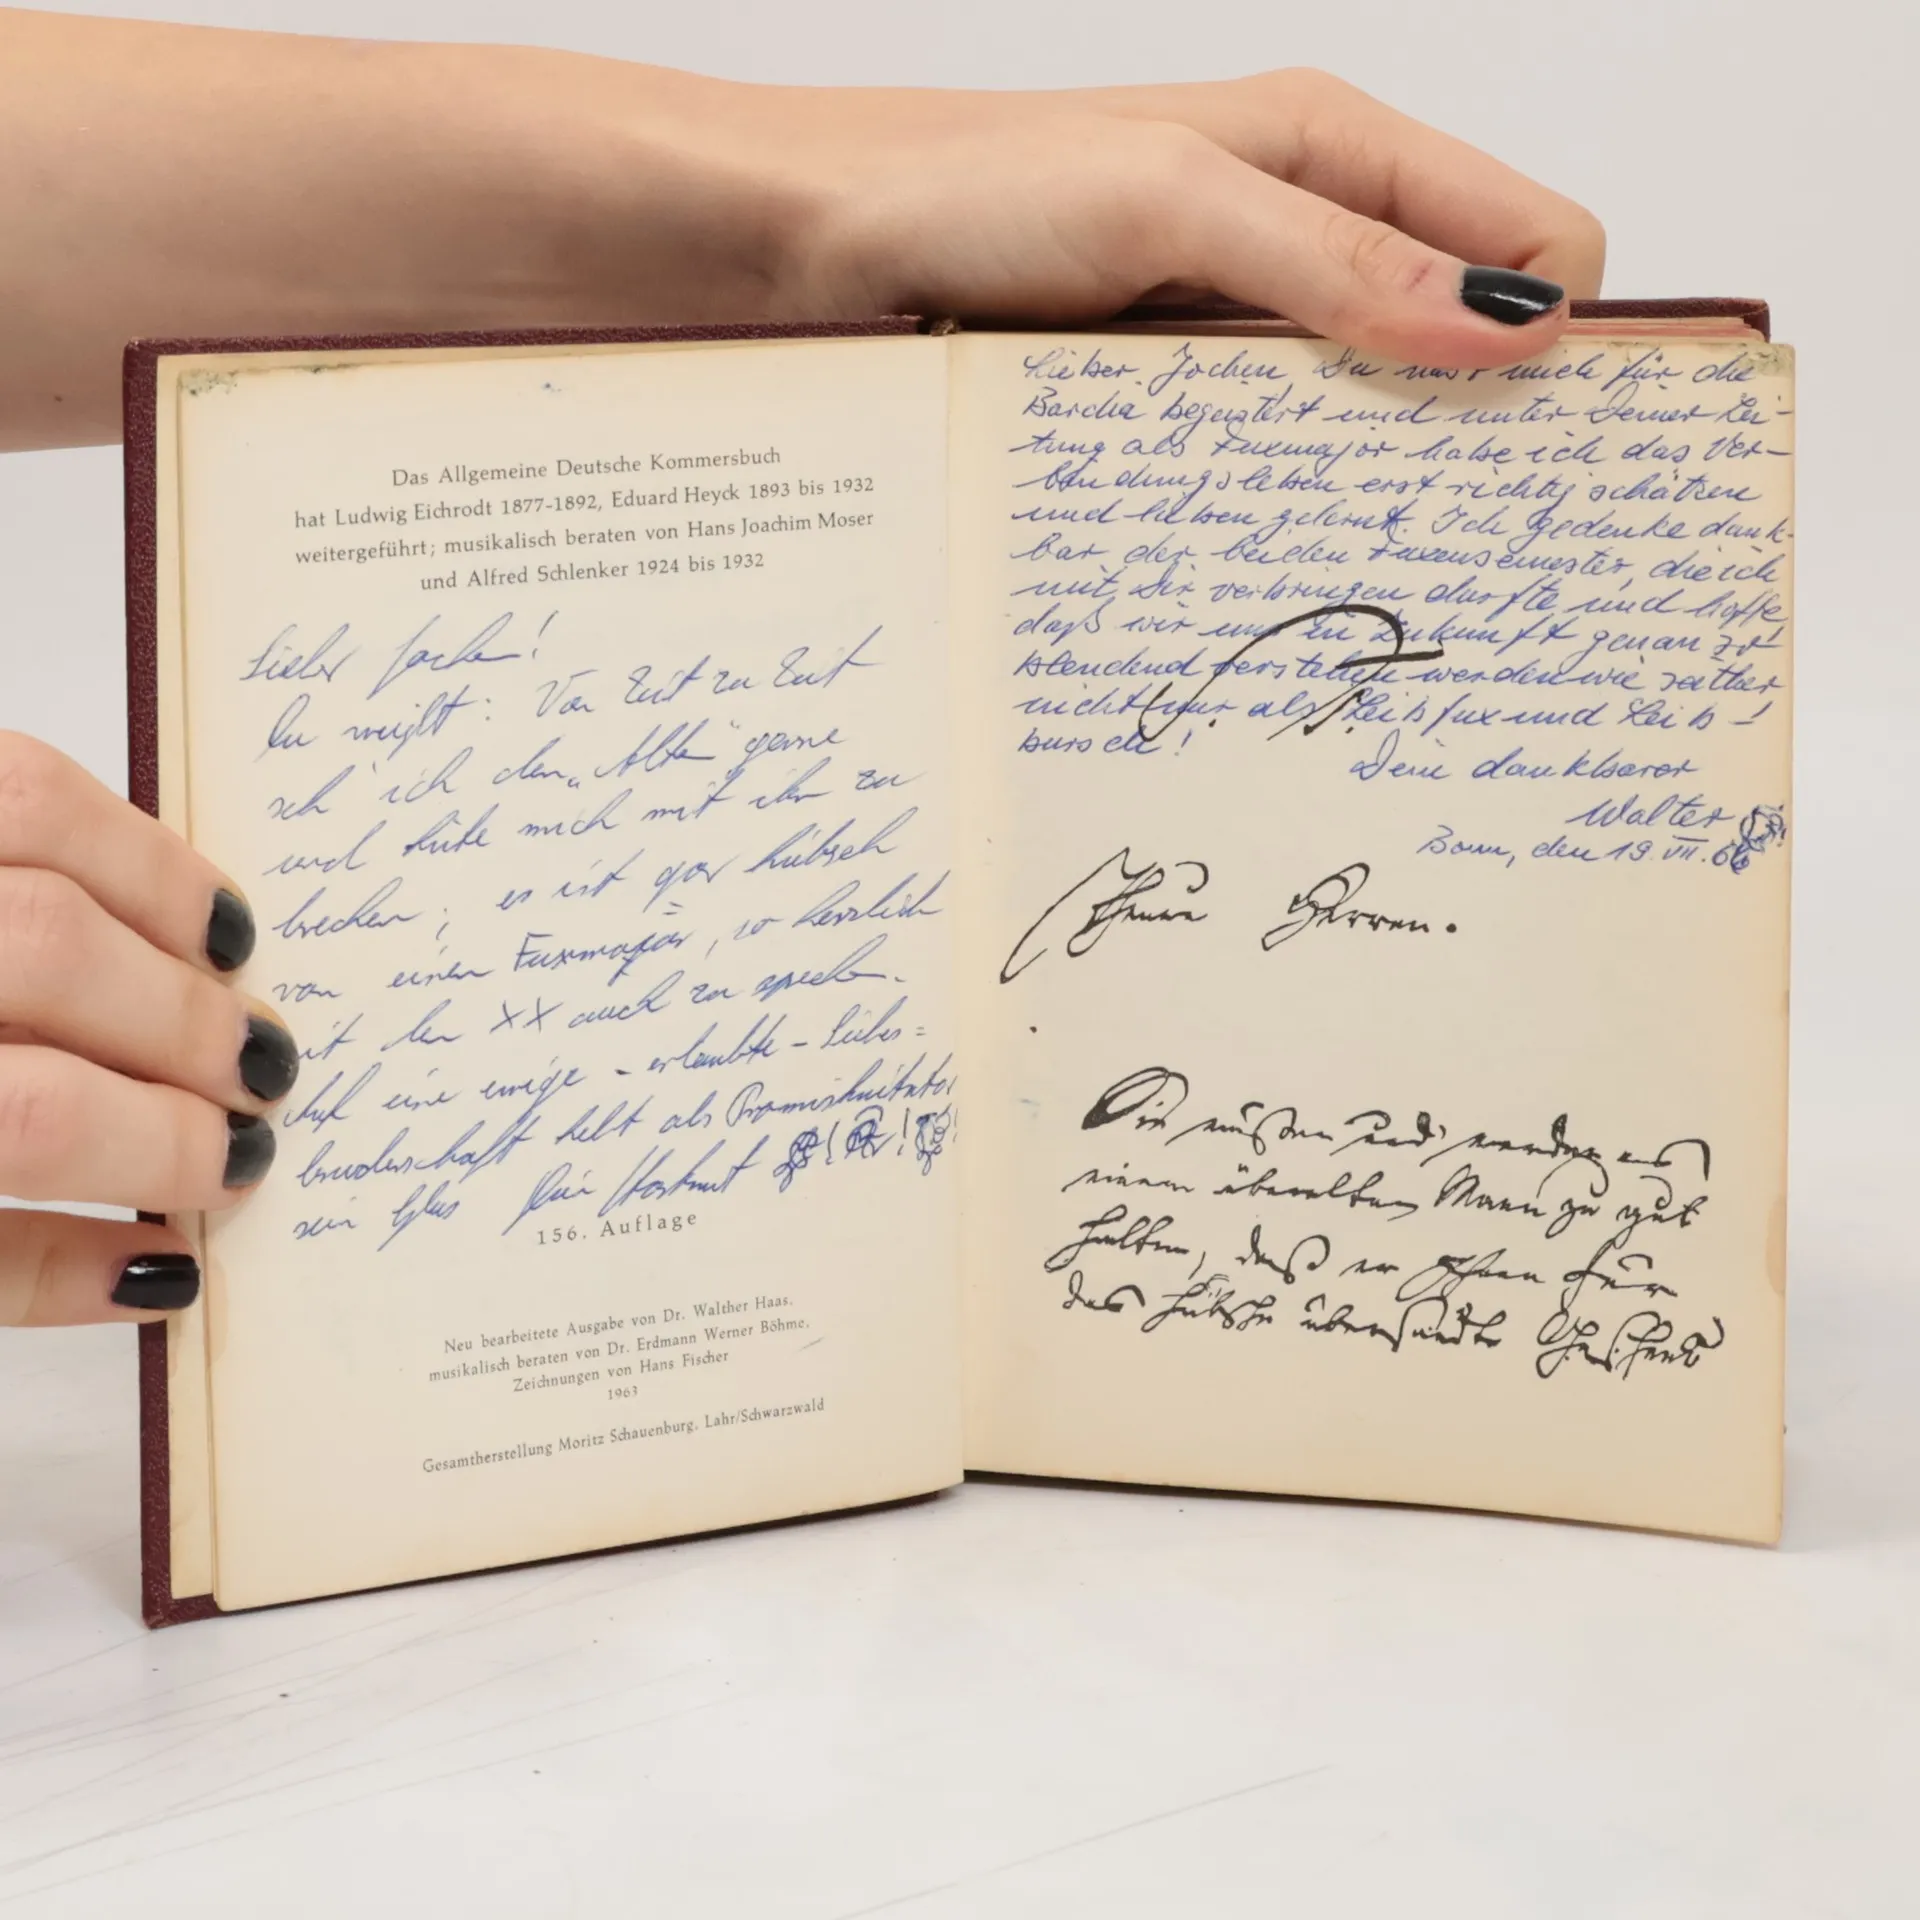 Das Allgemeine Deutsche Kommersbuch
hat Ludwig Eichrodt 1877-1892, Eduard Heyck 1893 bis 1932
weitergeführt; musikalisch beraten von Hans Joachim Moser
und Alfred Schlenker 1924 bis 1932
Lieber Jochen!
Du weißt: Von Zeit zu Zeit
seh ich den „Alten" gerne
und hüte mich mit ihm zu
brechen; es ist gar hübsch
von einem Fuxmajor, so herzlich
mit den XX auch zu sprechen.
Auf eine ewige - erlaubte - Liebes=
bruderschaft hebt als
sein Glas Dein Hartmut
156. Auflage
Neu bearbeitete Ausgabe von Dr. Walther Haas,
musikalisch beraten von Dr. Erdmann Werner Böhme,
Zeichnungen von Hans Fischer
1963
Gesamtherstellung Moritz Schauenburg, Lahr/Schwarzwald
Lieber Jochen, Du hast mich für die
begeistert und unter Deiner Lei-
tung als Fuxmajor habe ich das Ver-
bindungsleben erst richtig schätzen
und lieben gelernt. Ich gedenke dank-
bar der beiden Fuxensemester, die ich
mit Dir verbringen durfte und hoffe,
daß wir uns in Zukunft genau so
blendend verstehen werden wie seither
nicht nur als Leibfux und Leib-
bursch!
Dein dankbarer
Walter
Bonn, den 19. VII. 66
Herren.
Sie müssen und werden es
einem überalten Mann zu gut
halten, daß er Ihnen für
das hübsche übersandte Geschenk